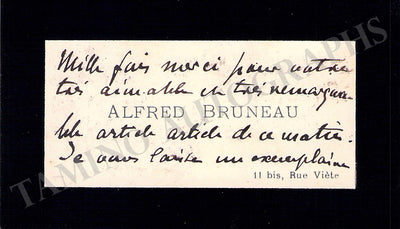 Mille fois merci pour votre
très aimable et très remarqua-
ALFRED BRUNEAU
ble article article de ce matin.
Je vous laisse un exemplaire
11 bis, Rue Viète
TAMINO AUTOGRAPHS